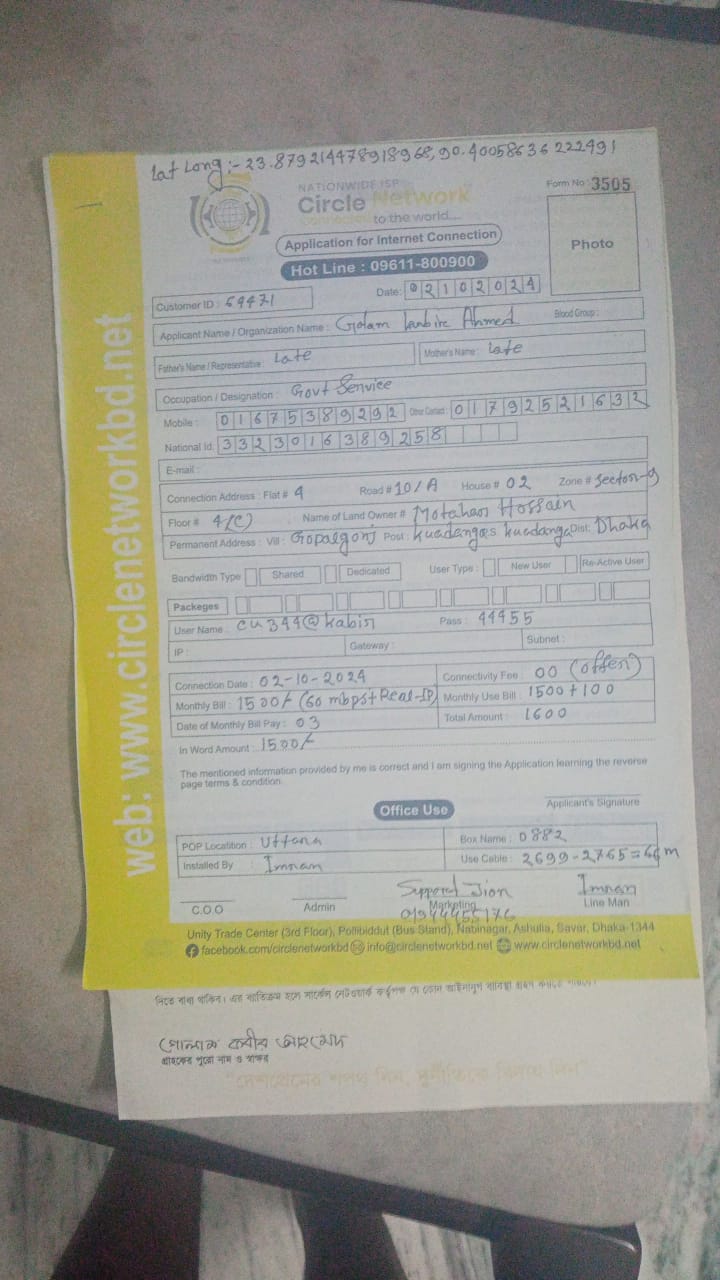 Lat Long:- 23.879214478918968, 90.40058636222491
NATIONWIDE ISP
Circle Network
Connected to the world....
Form No : 3505
Application for Internet Connection
Photo
Hot Line : 09611-800900
Date: 02102024
Customer ID :
Applicant Name / Organization Name : Golam Ahmed Blood Group :
Father's Name / Representative : Late Mother's Name : Late
Occupation / Designation : Govt Service
Mobile : 01675389292 Other Contact : 01792521632
National Id: 3323016389258
E-mail :
Connection Address : Flat # 4 Road # 10/A House # 02 Zone # Sector-9
Floor # 4(C) Name of Land Owner # Motahar Hossain
Permanent Address : Vill : Gopalgonj Post : Dist: Dhaka
Bandwidth Type Shared Dedicated User Type : New User Re-Active User
Packeges
User Name : cu344@kabir Pass : 44455
IP : Gateway : Subnet :
Connection Date : 02-10-2024 Connectivity Fee : 00 (offer)
Monthly Bill : 1500/- (60 mbps+Real-IP) Monthly Use Bill : 1500+100
Date of Monthly Bill Pay : 03 Total Amount : 1600
In Word Amount : 1500/-
The mentioned information provided by me is correct and I am signing the Application learning the reverse
page terms & condition.
Applicant's Signature
Office Use
POP Locatition : Uttara Box Name : 0882
Installed By : Imran Use Cable : 2699-2765=66m
Imran
C.O.O Admin Marketing Line Man
01944455176
Unity Trade Center (3rd Floor), Pollibiddut (Bus Stand), Nabinagar, Ashulia, Savar, Dhaka-1344
facebook.com/circlenetworkbd info@circlenetworkbd.net www.circlenetworkbd.net
web: www.circlenetworkbd.net
গোলাম কবীর আহমেদ
গ্রাহকের পুরো নাম ও স্বাক্ষর